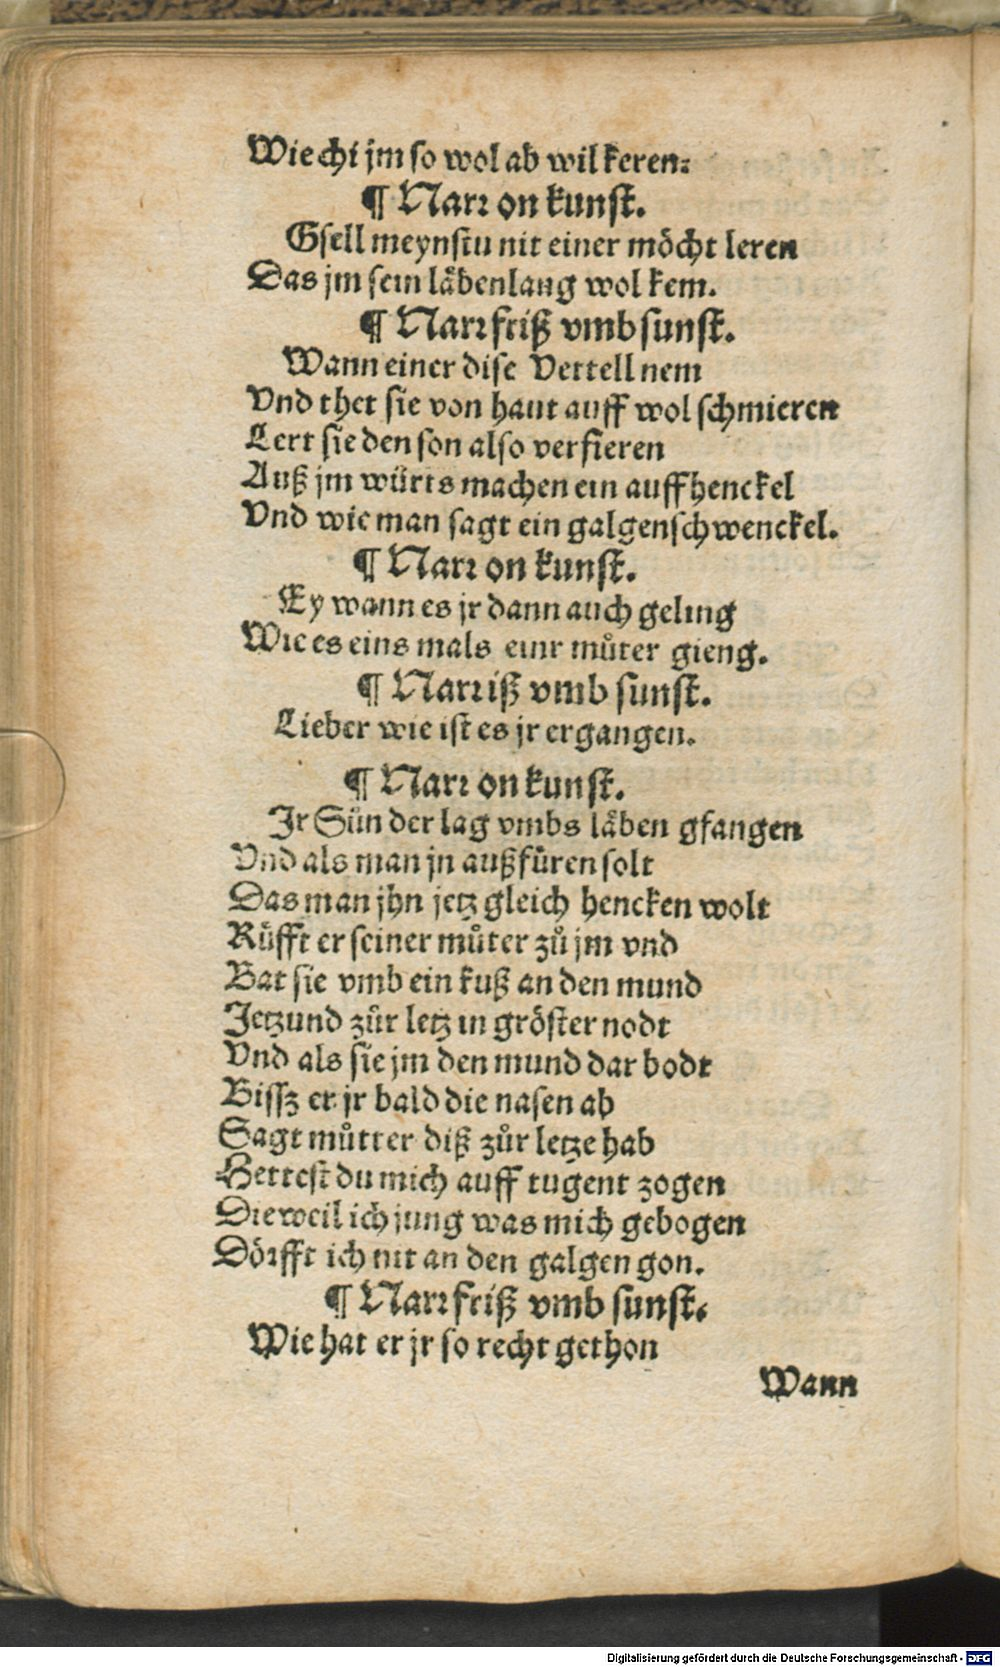 Wie chi jm so wol ab wil keren:
¶ Narr on kunst.
Gsell meynstu nit einer möcht leren
Das jm sein läbenlang wol kem.
¶ Narr friß vmb sunst.
Wann einer dise Vettell nem
Vnd thet sie von haut auff wol schmieren
Lert sie den son also verfieren
Auß jm würts machen ein auffhenckel
Vnd wie man sagt ein galgenschwenckel.
¶ Narr on kunst.
Ey wann es jr dann auch geling
Wie es eins mals einr můter gieng.
¶ Narr iß vmb sunst.
Lieber wie ist es jr ergangen.
¶ Narr on kunst.
Jr Sůn der lag vmbs läben gfangen
Vnd als man jn außfüren solt
Das man jhn jetz gleich hencken wolt
Rüfft er seiner můter zů jm vnd
Bat sie vmb ein kuß an den mund
Jetzund zůr letz in gröster nodt
Vnd als sie jm den mund dar bodt
Bissz er jr bald die nasen ab
Sagt můtter diß zůr letze hab
Hettest du mich auff tugent zogen
Dieweil ich jung was mich gebogen
Dörfft ich nit an den galgen gon.
¶ Narr friß vmb sunst.
Wie hat er jr so recht gethon
Wann
Digitalisierung gefördert durch die Deutsche Forschungsgemeinschaft - DFG